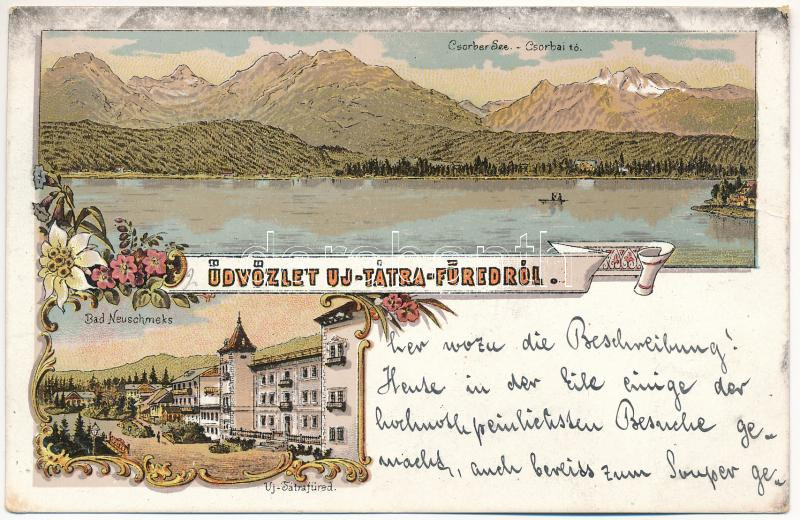 Csorber See. - Csorbai tó.
ÜDVÖZLET UJ-TÁTRA-FÜREDRŐL.
Bad Neuschmeks
Uj-Tátrafüred.
her wozu die Beschreibung!
Heute in der Eile einige der
hochnothpeinlichsten Besuche ge-
macht, auch bereits zum Souper ge-